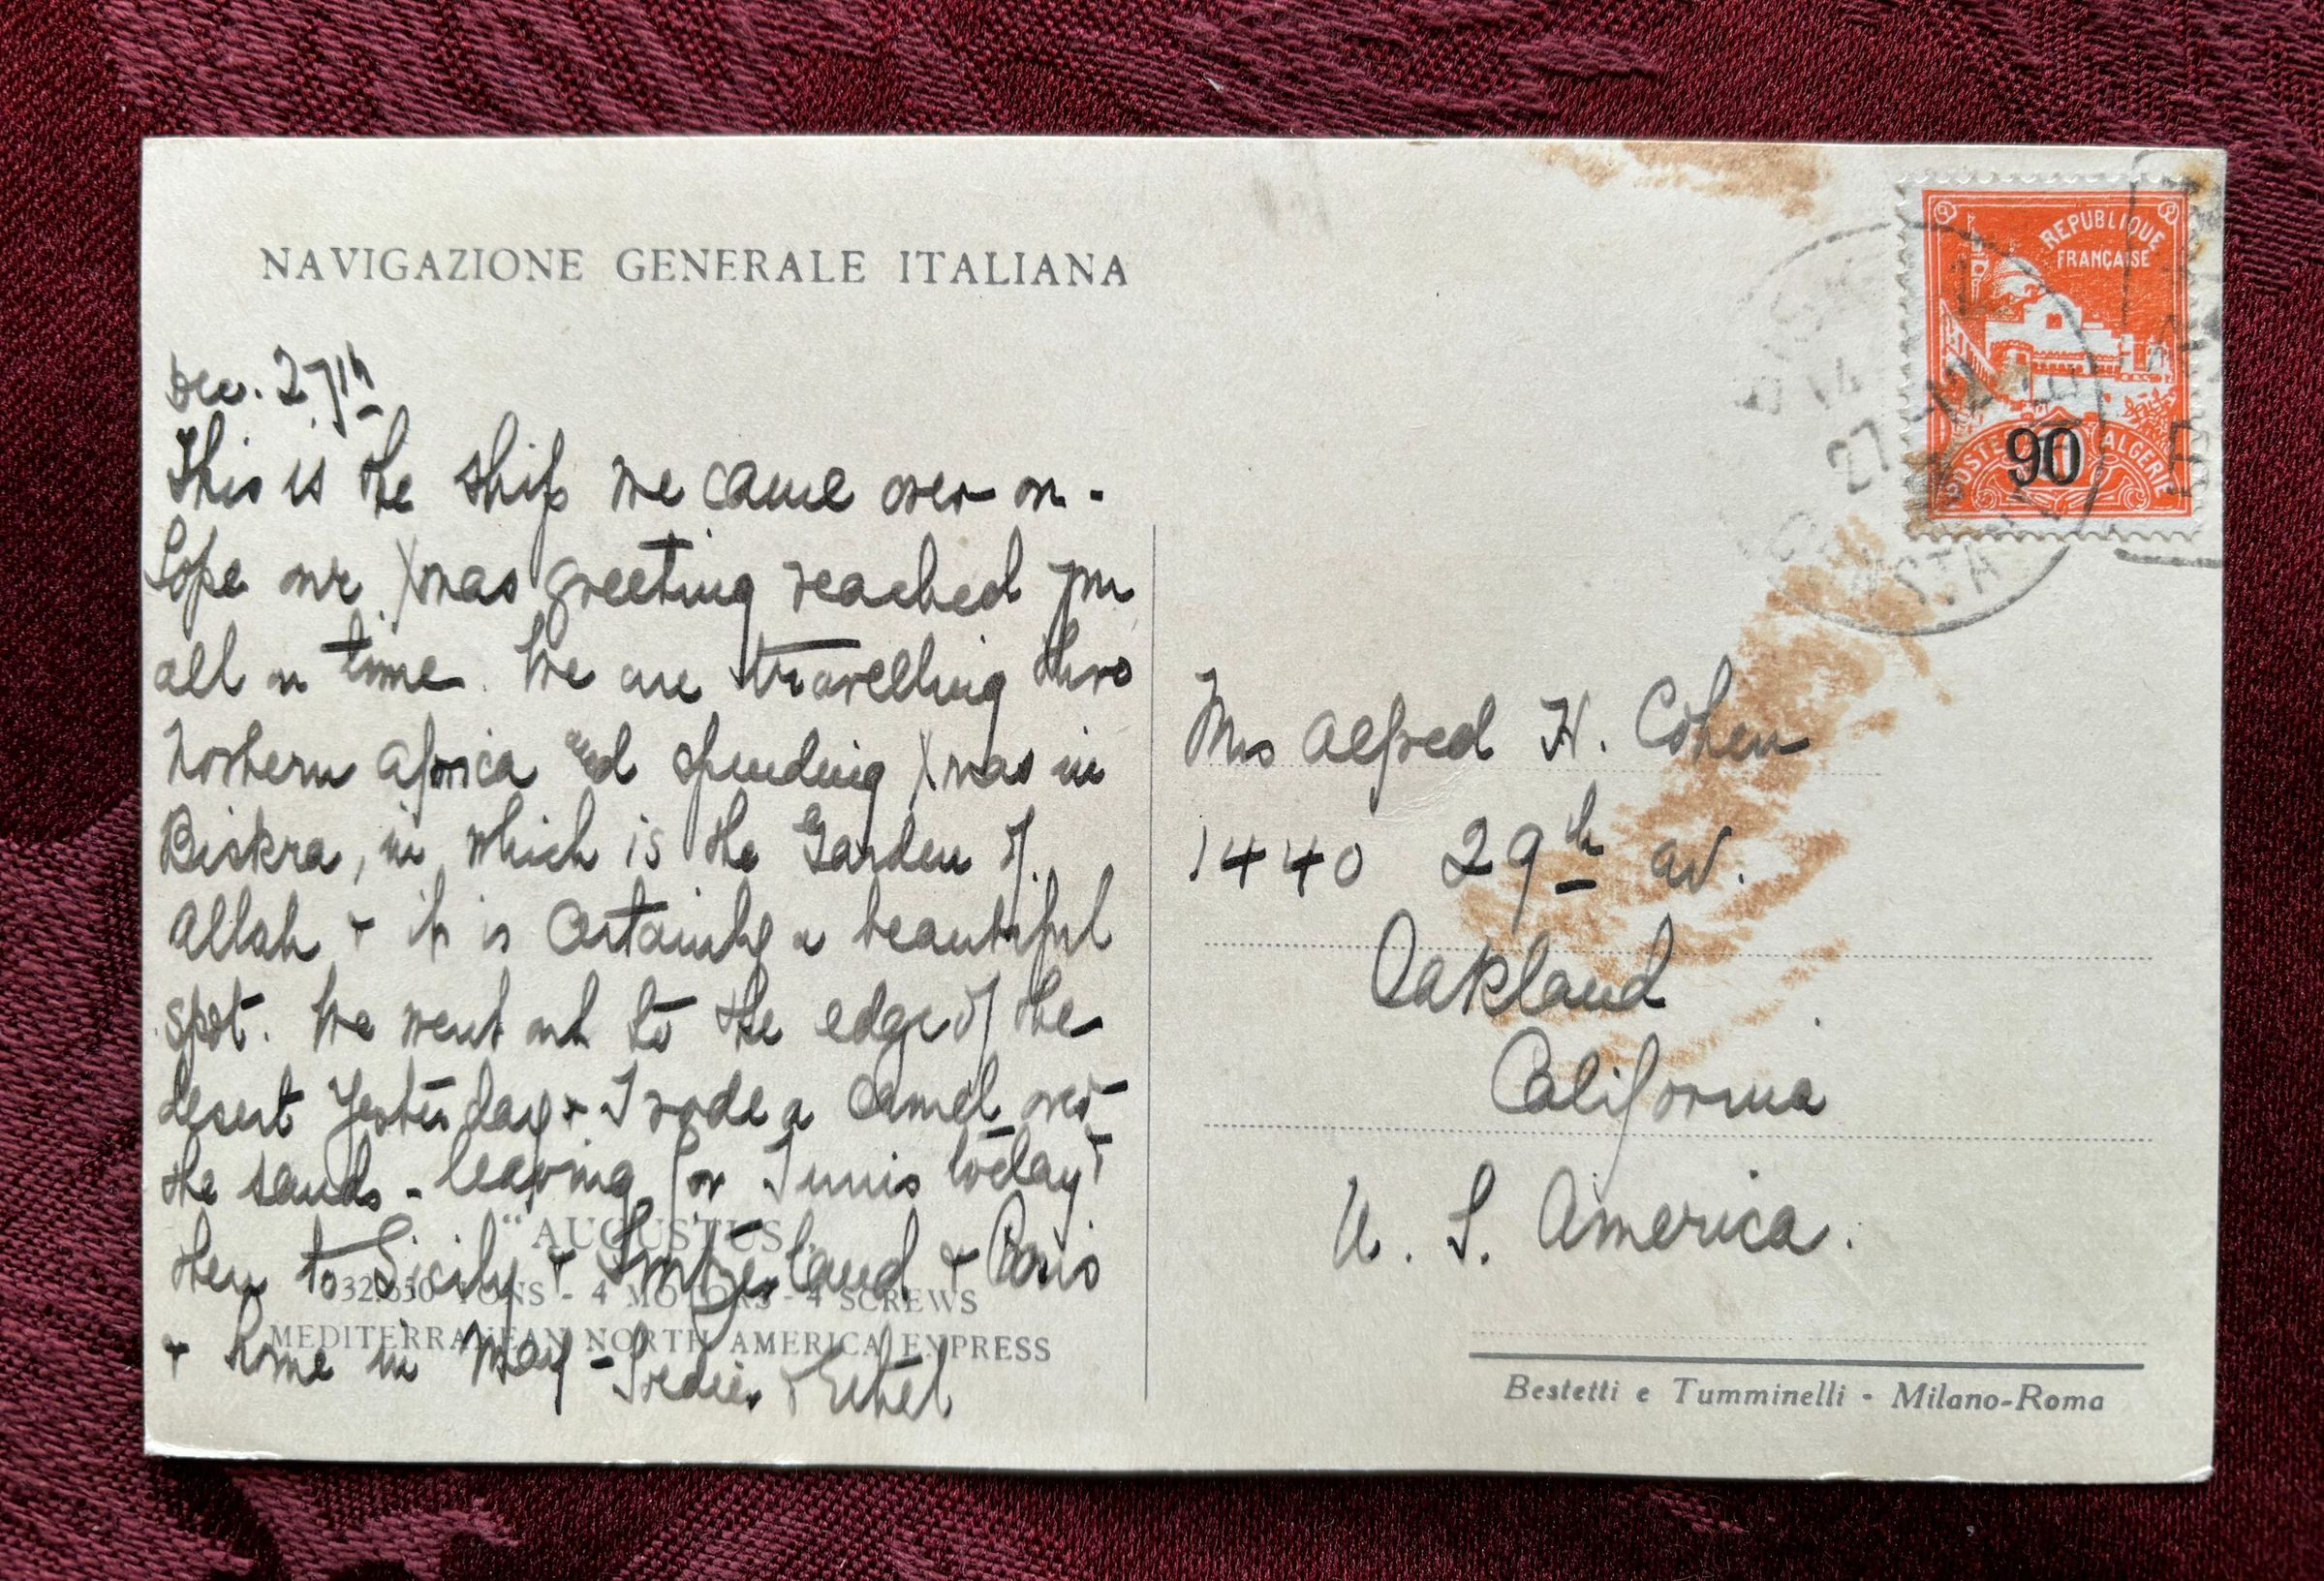 NAVIGAZIONE GENERALE ITALIANA
Dec. 27th
This is the ship we came over on -
Hope our Xmas greeting reached you
all on time. We are travelling thro
Northern Africa and spending Xmas in
Biskra, in which is the Garden of
Allah + it is certainly a beautiful
spot. We went out to the edge of the
desert yesterday + I rode a camel over
the sands - leaving for Tunis today +
then to Sicily + Switzerland + Paris
+ home in May - + Ethel
"AUGUSTUS"
32.650 TONS - 4 MOTORS - 4 SCREWS
MEDITERRANEAN NORTH AMERICA EXPRESS
REPUBLIQUE
FRANÇAISE
POSTES ALGERIE
90
27 -12
Mrs Alfred H. Cohen
1440 29th av.
Oakland
California
U. S. America.
Bestetti e Tumminelli - Milano-Roma